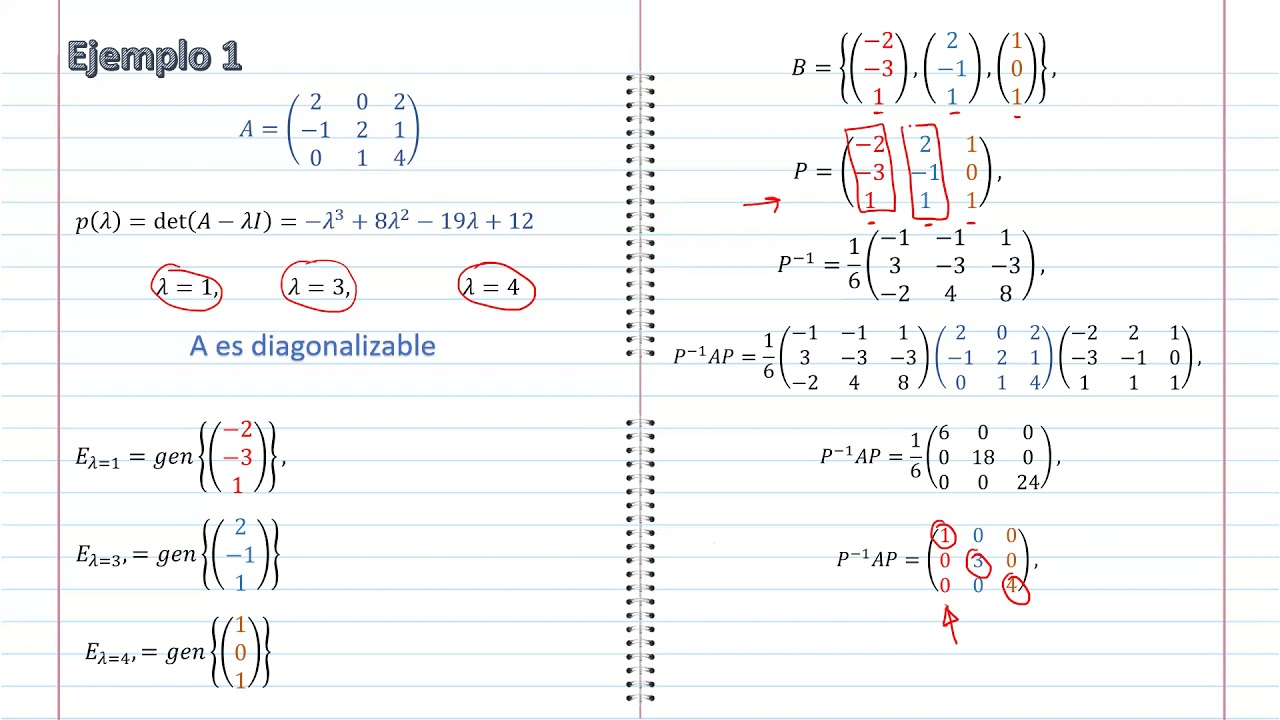 Ejemplo 1
A = \begin{pmatrix} 2 & 0 & 2 \\ -1 & 2 & 1 \\ 0 & 1 & 4 \end{pmatrix}
p(λ) = det(A − λI) = −λ³ + 8λ² − 19λ + 12
λ = 1, λ = 3, λ = 4
A es diagonalizable
E_{λ=1} = gen \left\{ \begin{pmatrix} -2 \\ -3 \\ 1 \end{pmatrix} \right\},
E_{λ=3}, = gen \left\{ \begin{pmatrix} 2 \\ -1 \\ 1 \end{pmatrix} \right\}
E_{λ=4}, = gen \left\{ \begin{pmatrix} 1 \\ 0 \\ 1 \end{pmatrix} \right\}
B = \left\{ \begin{pmatrix} -2 \\ -3 \\ 1 \end{pmatrix}, \begin{pmatrix} 2 \\ -1 \\ 1 \end{pmatrix}, \begin{pmatrix} 1 \\ 0 \\ 1 \end{pmatrix} \right\},
P = \begin{pmatrix} -2 & 2 & 1 \\ -3 & -1 & 0 \\ 1 & 1 & 1 \end{pmatrix},
P^{-1} = \frac{1}{6} \begin{pmatrix} -1 & -1 & 1 \\ 3 & -3 & -3 \\ -2 & 4 & 8 \end{pmatrix},
P^{-1}AP = \frac{1}{6} \begin{pmatrix} -1 & -1 & 1 \\ 3 & -3 & -3 \\ -2 & 4 & 8 \end{pmatrix} \begin{pmatrix} 2 & 0 & 2 \\ -1 & 2 & 1 \\ 0 & 1 & 4 \end{pmatrix} \begin{pmatrix} -2 & 2 & 1 \\ -3 & -1 & 0 \\ 1 & 1 & 1 \end{pmatrix},
P^{-1}AP = \frac{1}{6} \begin{pmatrix} 6 & 0 & 0 \\ 0 & 18 & 0 \\ 0 & 0 & 24 \end{pmatrix},
P^{-1}AP = \begin{pmatrix} 1 & 0 & 0 \\ 0 & 3 & 0 \\ 0 & 0 & 4 \end{pmatrix},